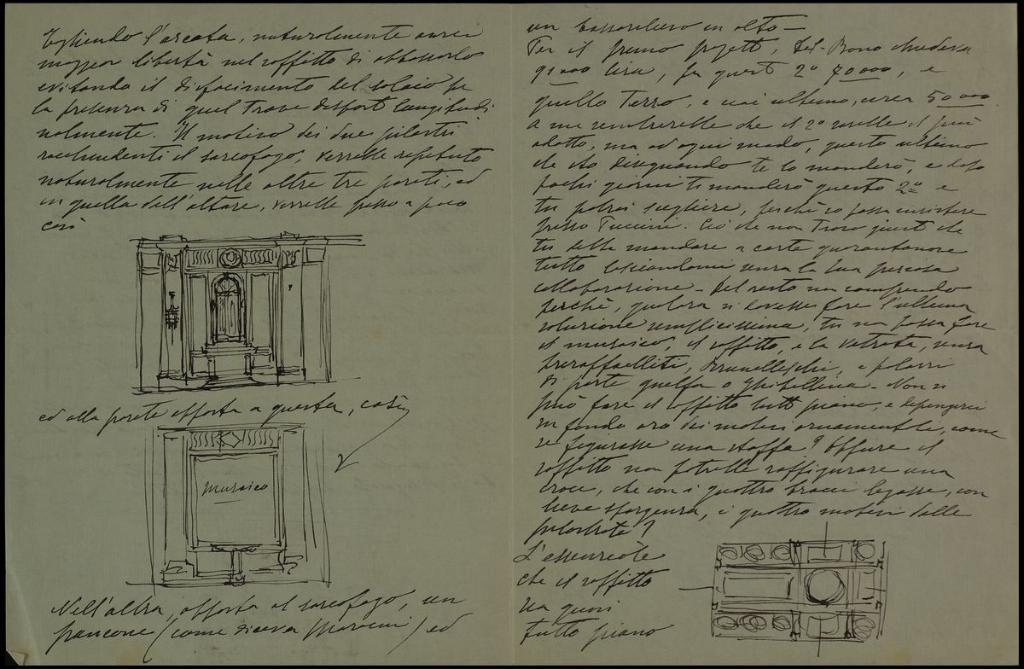 Togliendo l'arcata, naturalmente avrei
maggior libertà nel soffitto di abbassarlo
evitando il disfacimento del solaio per
la presenza di quel trave disposto longitudi
nalmente. Il motivo dei due pilastri
racchiudenti il sarcofago, verrebbe ripetuto
naturalmente nelle altre tre pareti, ed
in quella dell'altare, verrebbe presso a poco
così
ed alla parte opposta a questa, così
Musaico
Nell'altra, opposta al sarcofago, un
pancone (come diceva Marini) ed
un bassorilievo in alto –
Per il primo progetto, Del-Bono chiedeva
91000 lire, per questo 2º 70000, e
quello terzo, e cioè ultimo, circa 50000
A me sembrerebbe che il 2º sarebbe il più
adatto, ma ad ogni modo, questo ultimo
che sto disegnando te lo manderò, e dopo
pochi giorni ti manderò questo 2º e
tu potrai scegliere, perchè io possa insistere
presso Puccini. Ciò che non trovo giusto che
tu debba mandare a carte quarantanove
tutto lasciandomi senza la tua preziosa
collaborazione – Del resto non comprendo
perchè, qualora si dovesse fare l'ultima
soluzione semplicissima, tu non possa fare
il musaico, il soffitto, e la vetrata, senza
preraffaelliti, Brunelleschi, e
di parte guelfa o ghibellina. Non si
può fare il soffitto tutto piano, e dipingervi
in fondo oro dei motivi ornamentali, come
se figurasse una stoffa? Oppure il
soffitto non potrebbe raffigurare una
croce, che con i quattro bracci legasse, con
lieve sporgenza, i quattro motivi delle
pilastrate?
L'essenziale è
che il soffitto
sia quasi
tutto piano